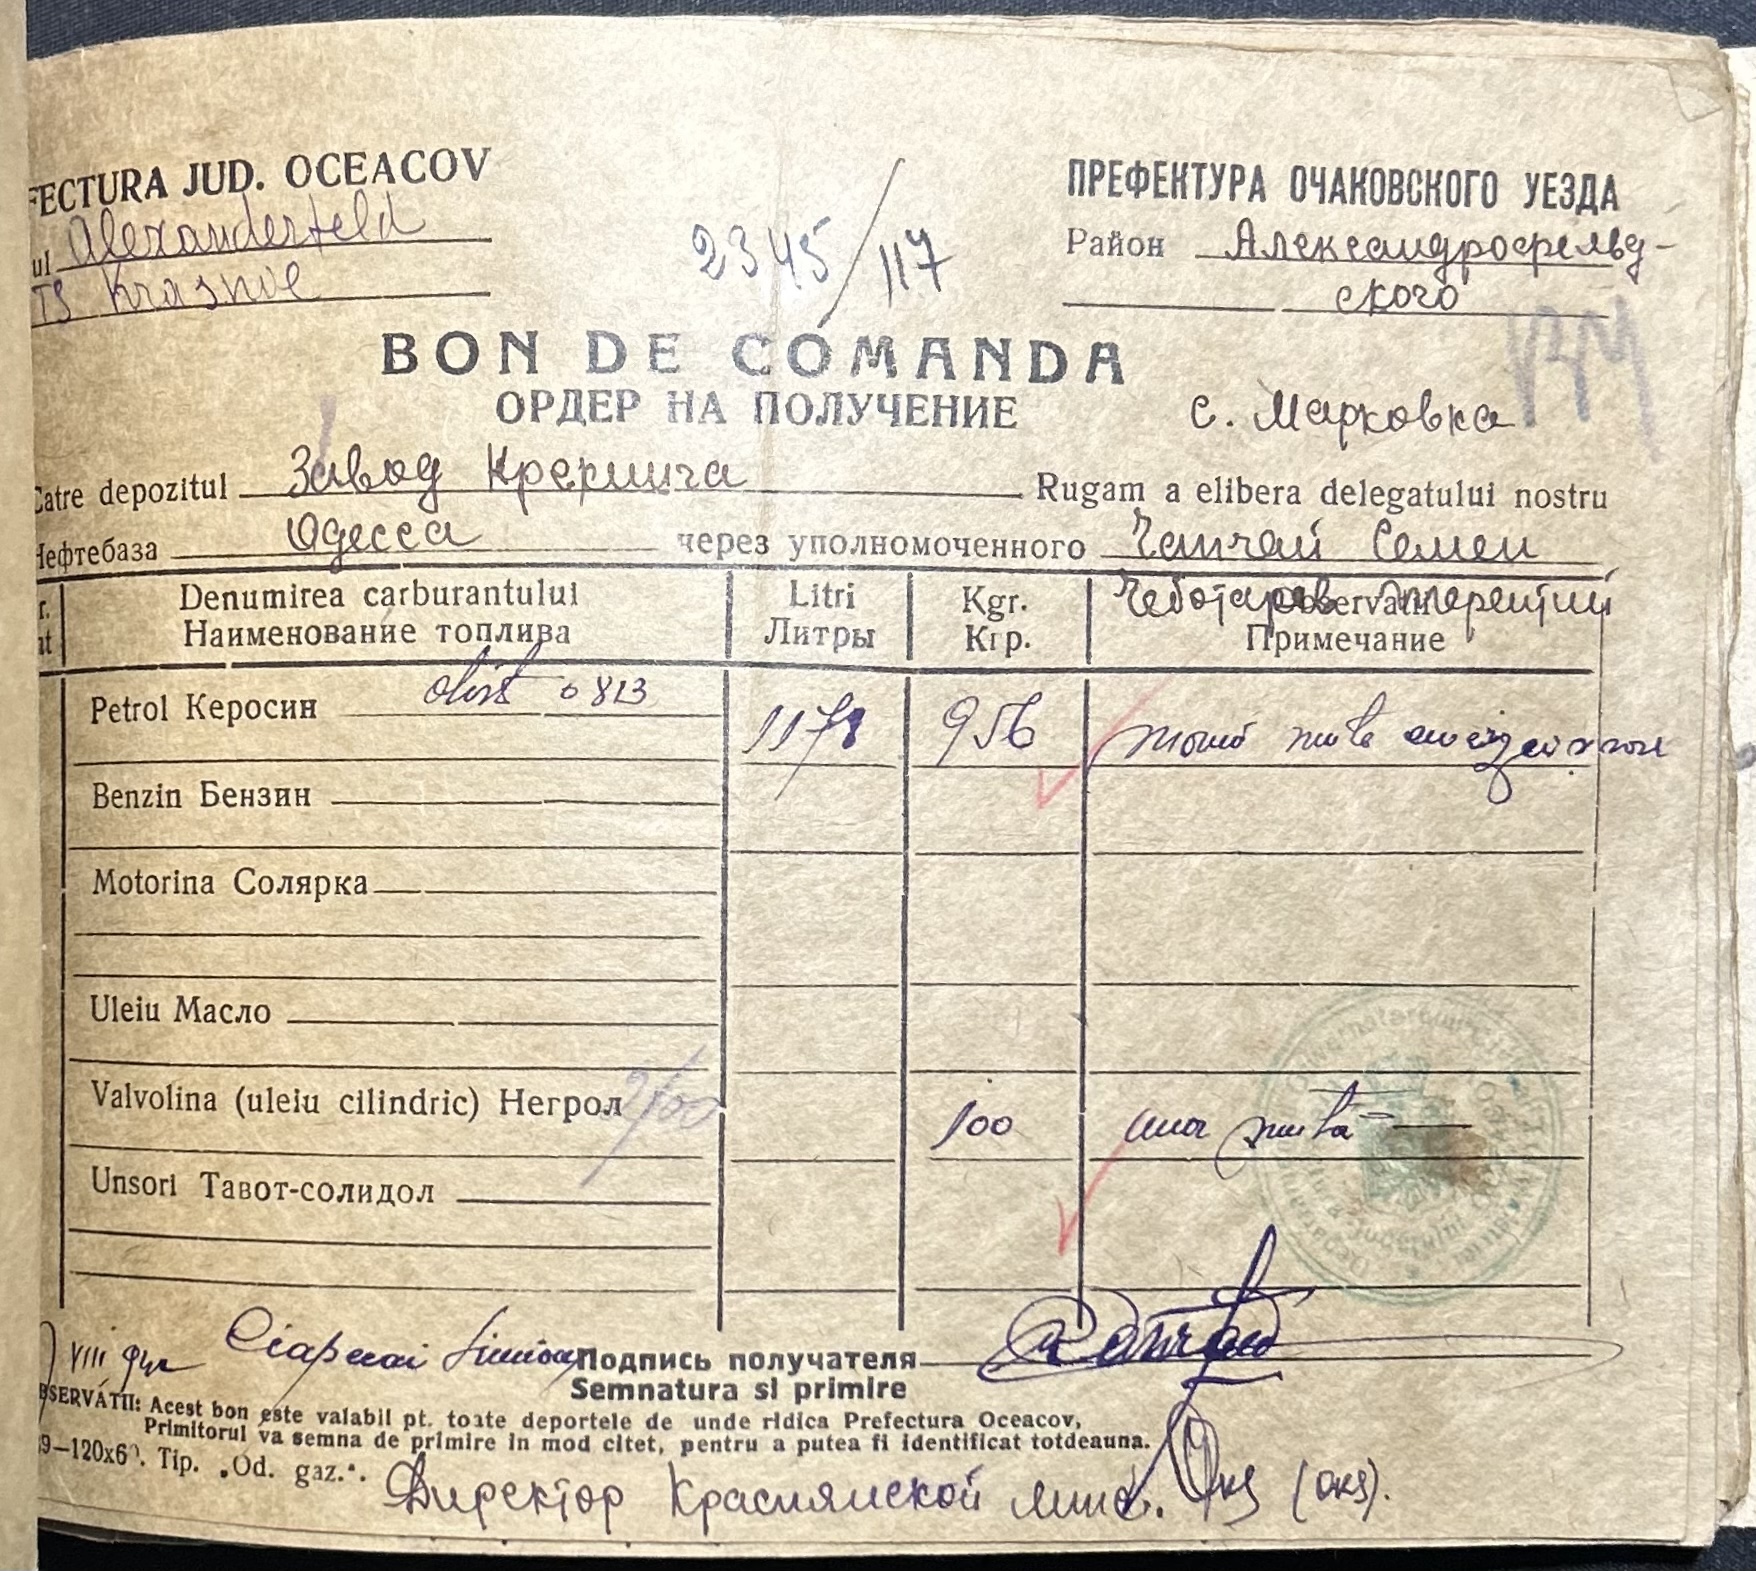 FECTURA JUD. OCEACOV
ПРЕФЕКТУРА ОЧАКОВСКОГО УЕЗДА
ul Alexanderfeld
Район Александрофельд-
TS Krasnoe
ского
2345/117
BON DE COMANDA
ОРДЕР НА ПОЛУЧЕНИЕ
с. Марковка
Catre depozitul Завод Крекинга Rugam a elibera delegatului nostru
Нефтебаза Одесса через уполномоченного Чапчай Семен
Чеботарев Терентий
Denumirea carburantului Litri Kgr. Observatii
Наименование топлива Литры Кгр. Примечание
Petrol Керосин 0813 1178 956 nouă sute
Benzin Бензин
Motorina Солярка
Uleiu Масло
Valvolina (uleiu cilindric) Негрол 100 una sută
Unsori Тавот-солидол
VIII Simion Подпись получателя
Semnatura si primire
BSERVĂTII: Acest bon este valabil pt. toate deportele de unde ridica Prefectura Oceacov,
Primitorul va semna de primire in mod citet, pentru a putea fi identificat totdeauna.
9—120x6 . Tip. „Od. gaz.“.
Директор Краснянской (окş).